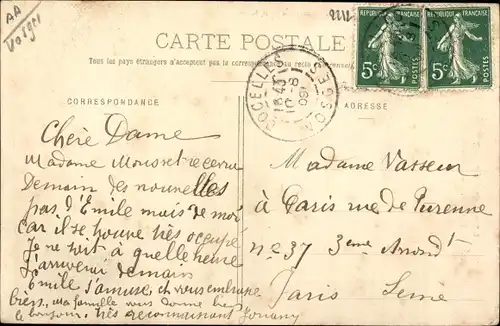 AA
Vosges
CARTE POSTALE
Tous les pays étrangers n'acceptent pas la correspondance au recto
CORRESPONDANCE
ADRESSE
RÉPUBLIQUE FRANÇAISE
5c POSTES
RÉPUBLIQUE FRANÇAISE
5c POSTES
Chère Dame
Madame Mousset recevra
Demain des nouvelles
pas d'Emile mais de moi
car il se trouve très occupé
Je ne sait à quelle heure
J'arriverai demain
Emile s'amuse, et vous embrasse
bien, ma famille vous donne bien
le bonjour très reconnaissant
Madame Vasseur
à Paris rue de Turenne
no 37 3eme Arrondt
Paris Seine